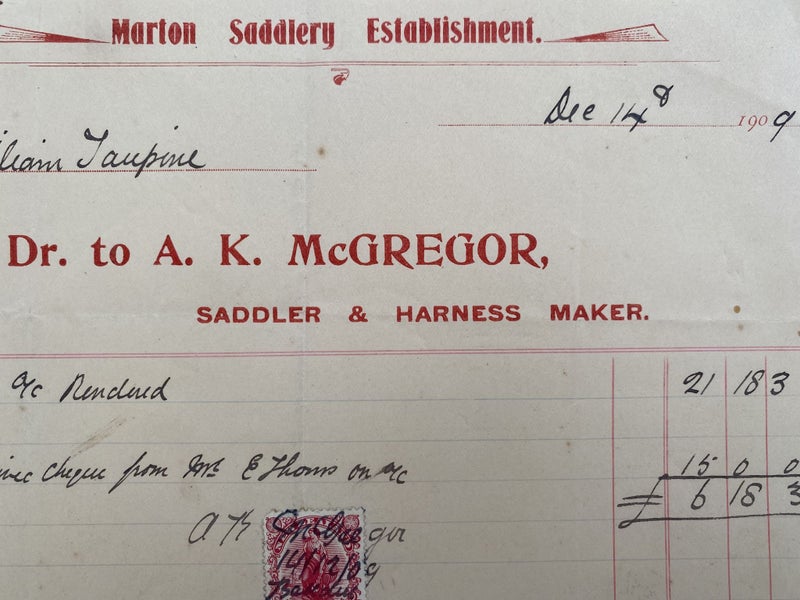 Marton Saddlery Establishment.
Dec 14th 1909
lliam Taupine
Dr. to A. K. McGREGOR,
SADDLER & HARNESS MAKER.
a/c Rendered 21 18 3
cheque from Mr E Thoms on a/c 15 0 0
£ 6 18 3
A K McGregor
14/12/09